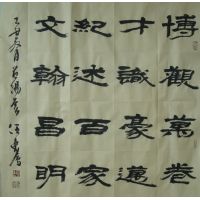 博觀萬卷
才識豪邁
紀述百家
文翰昌明